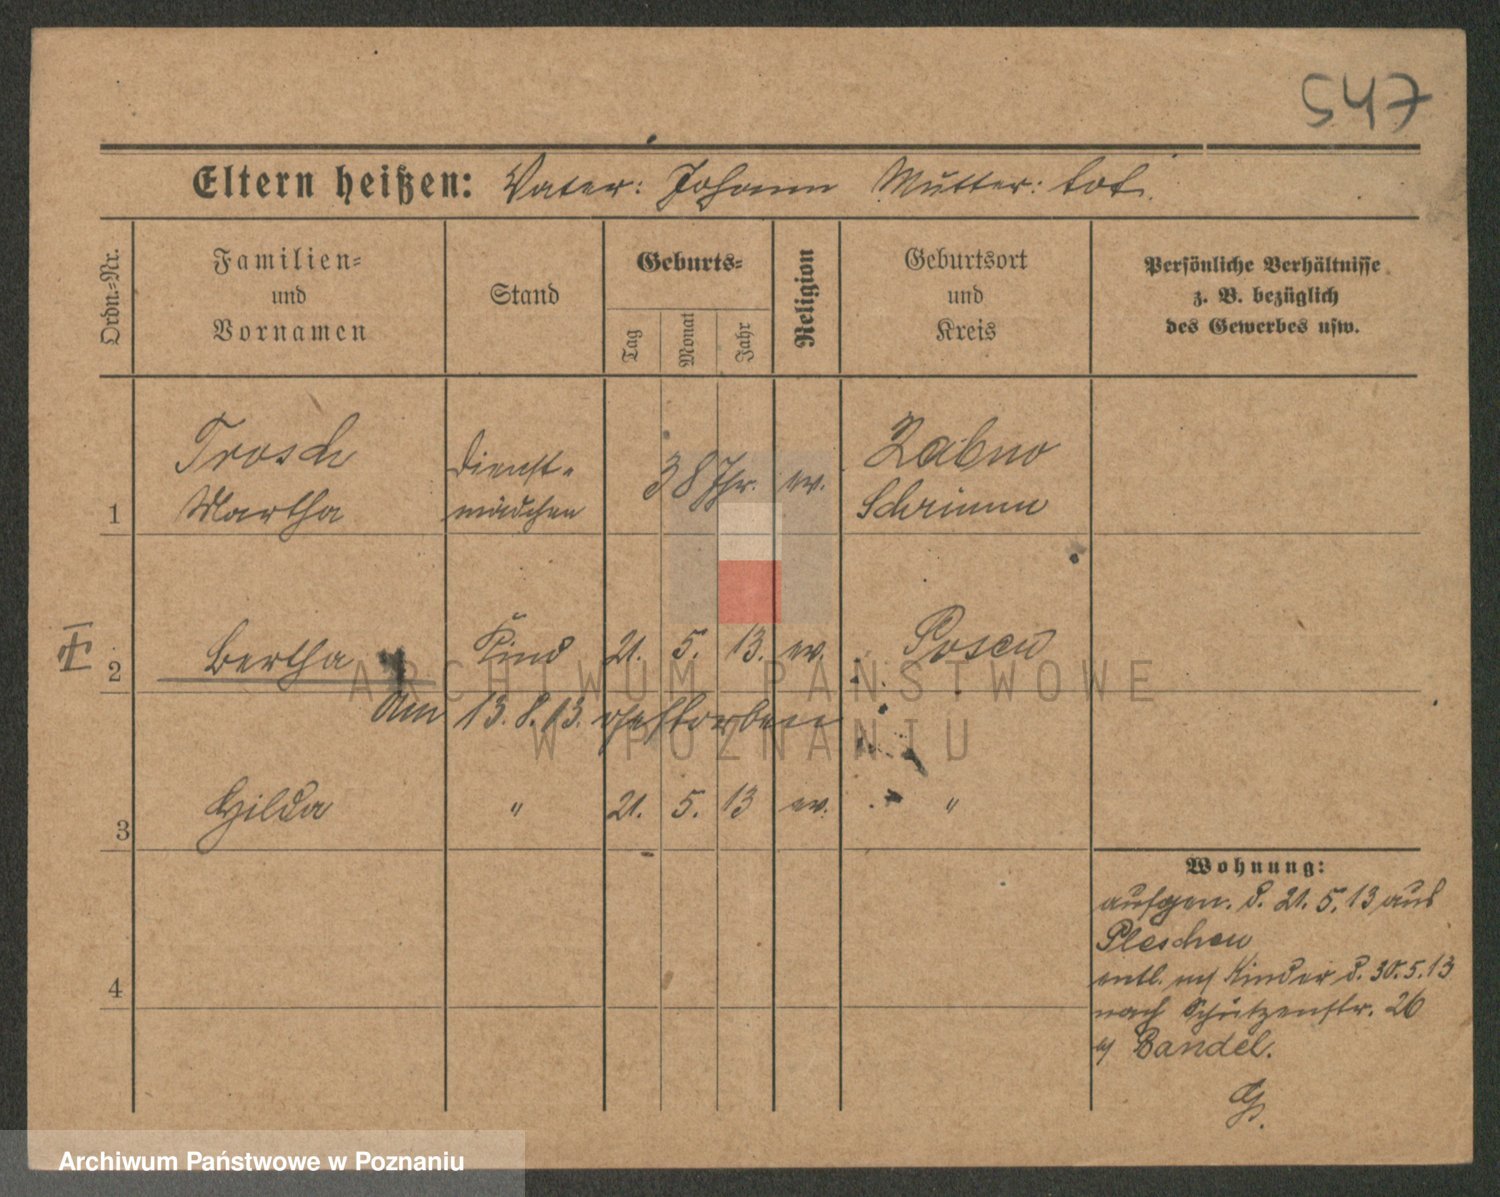 547
Eltern heißen: Vater: Johann Mutter: tot.
Ordn.-Nr.
Familien-
und
Vornamen
Stand
Geburts-
Tag
Monat
Jahr
Religion
Geburtsort
und
Kreis
Persönliche Verhältnisse
z. B. bezüglich
des Gewerbes usw.
1 Trosch Dienst- 38 Jhr. ev. Zabno
Martha mädchen Schrimm
2 Bertha Kind 21. 5. 13. ev. Posen
Am 13. 8. 13. gestorben
3 Hilda " 21. 5. 13 ev. "
4
Wohnung:
aufgen. d. 21. 5. 13 aus
Pleschen
entl. m/ Kinder d. 30. 5. 13
nach Schützenstr. 26
b/ Bandel.
ARCHIWUM PAŃSTWOWE
W POZNANIU
Archiwum Państwowe w Poznaniu